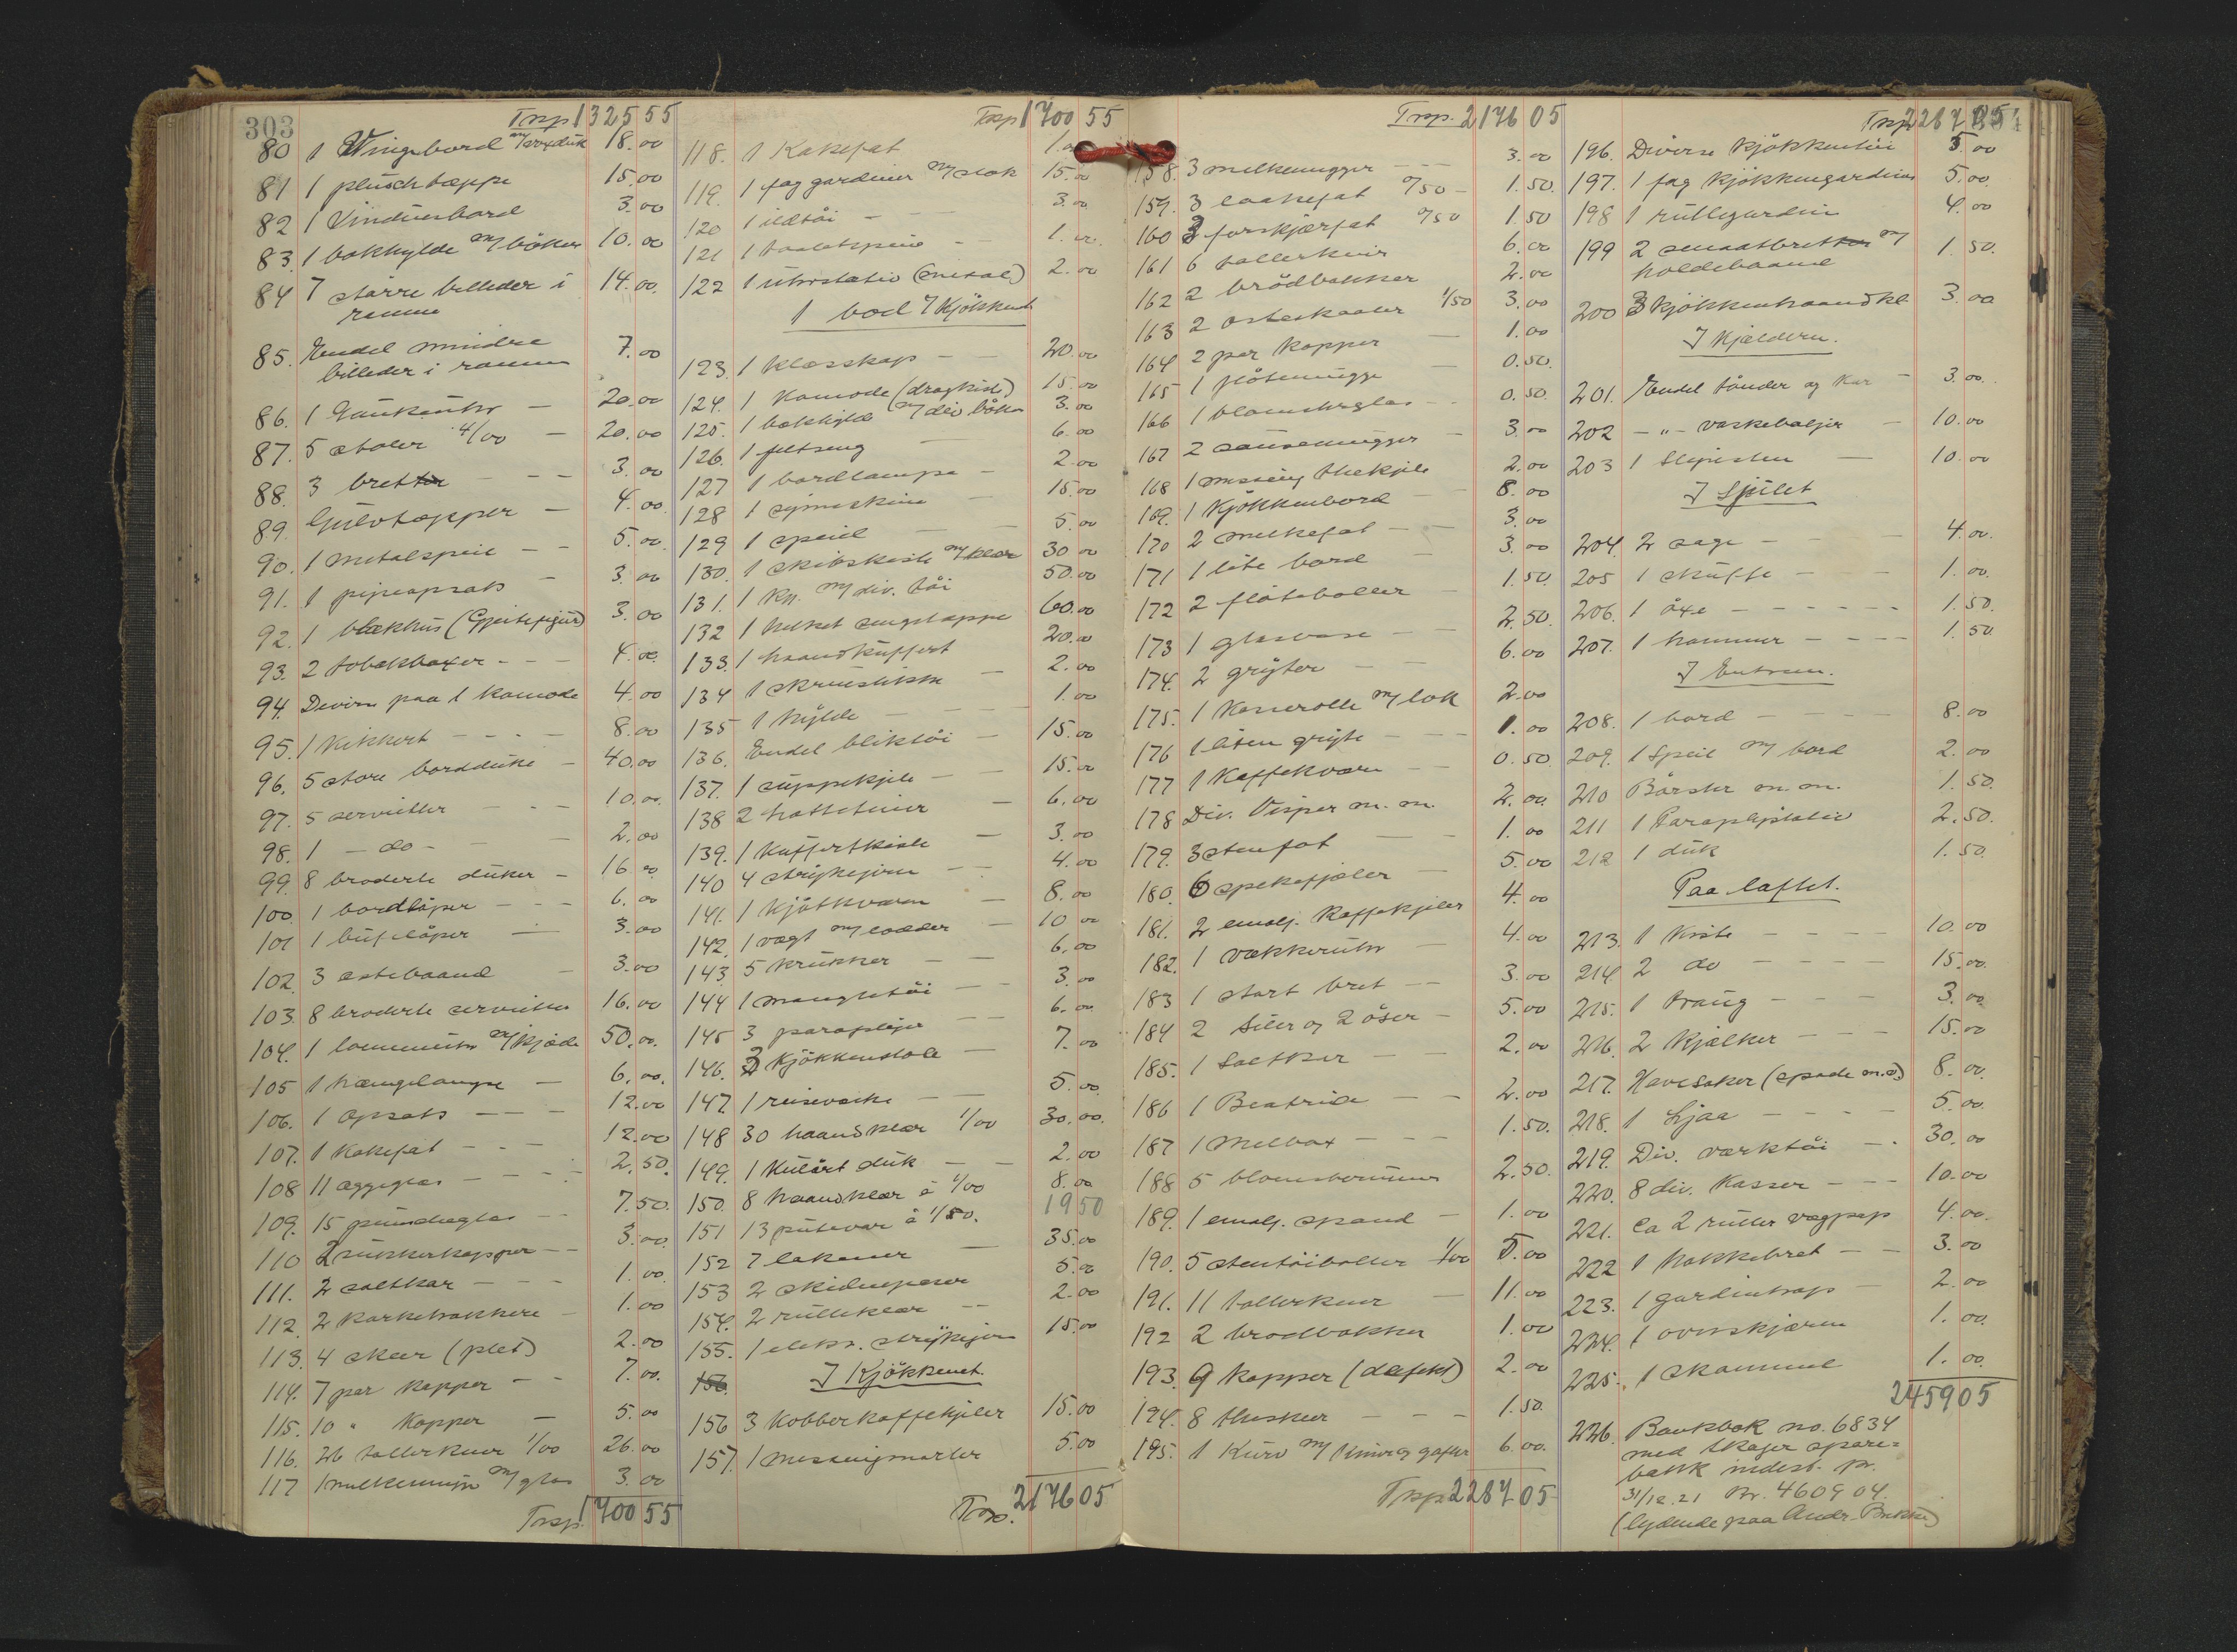 303
Trsp 1325 55
80 1 Vingebord m/voxduk 18.00
81 1 plüschtæppe 15.00
82 1 Vinduesbord 3.00
83. 1 bokhylde m/bøker 10.00
84 7 større billeder i 14.00.
ramme
85. Endel mindre
billeder i ramme 7.00
86. 1 Gaukeuhr 20.00
87. 5 stoler 4/00 20.00
88. 3 bretter 3.00
89. Gulvtæpper 4.00
90. 1 metalspeil 5.00
91. 1 pipeopsats 3.00
92. 1 blækhus (Gjeitefigur) 3.00
93. 2 tobakboxer 4.00
94. Divirse paa 1 komode 4.00
95. 1 kikkert 8.00
96. 5 store bordduke 40.00
97. 5 servietter 10.00.
98. 1 - do - 2.00
99. 8 broderte duker 16.00
100 1 bordløper 6.00
101 1 bufeløper 3.00
102. 3 ostebaand 3.00
103. 8 broderte servietter 16.00
104. 1 lommeuhr m/kjæde 50.00.
105 1 hængelampe 6.00.
106. 1 opsats 12.00
107. 1 kakefat 12.00
108 11 æggeglas 2.50.
109. 15 punscheglas 7.50.
110 2 sukkerkopper 3.00.
111. 2 saltkar 1.00.
112. 2 korketrækkere 1.00
113. 4 skeer (plet) 2.00
114. 7 par kopper 7.00.
115. 10 " Kopper 5.00
116. 26 tallerkener 1/00 26.00
117 1 melkemugge m/glas 3.00
Trsp. 1700 55
Trsp 1700 55
118. 1 Kakefat 1.00
119. 1 fag gardiner m/stok 15.00
120 1 ildtøi 3.00
121 1 toiletspeil 1.00.
122 1 uhrstativ (metal) 2.00
1 bod I Kjøkkenet
123. 1 Klæsskap 20.00
124. 1 Komode (dragkiste) 15.00
125. 1 bokhylde m/div bøker 3.00
126. 1 feltseng 6.00
127 1 bordlampe 2.00
128 1 symaskine 15.00
129 1 speil 5.00
130. 1 skibskiste m/klær 30.00
131. 1 Kp. m/div. tøi 50.00
132 1 heklet sengetæppe 60.00
133. 1 haandkuffert 20.00
134 1 skruestikke 2.00
135 1 hylde 1.00
136. Endel bliktøi 15.00
137. 1 suppekjele 15.00
138 2 hatteteiner 6.00
139. 1 Kuffertkiste 3.00
140 4 strykejern 4.00
141. 1 kjøtkværn 8.00
142. 1 vægt m/lodder 10.00
143. 5 krukker 6.00
144 1 mangletøi 3.00
145 3 paraplyer 6.00
146. 3 Kjøkkenstole 7.00
147 1 reisevæske 5.00
148 30 haandklær 1/00 30.00.
149. 1 Kulørt duk 2.00
150. 8 haandklær à 1/00 8.00
151 13 putevar à 1/50. 19 50
152 7 lakener 35.00
153 2 skidnepaser 5.00
154. 2 rulleklær 2.00
155. 1 elektr. strykejern 15.00
156.
I Kjøkkenet.
156 3 Kobberkaffekjeler 15.00
157. 1 messingmorter 5.00
Trsp. 2176 05
Trsp. 2176 05
158. 3 melkemugger 3.00
159. 3 laakefat 0/50 1.50.
160 3 forskjærfat 0/50 1.50
161 6 tallerkner 6.00
162 2 brødbakker 2.00
163 2 osteskaaler 1/50 3.00
164 2 par kopper 1.00
165 1 fløtemugge 0.50.
166 1 blomsterglas 0.50.
167 2 sausemugger 3.00
168 1 messing thekjele 2.00
169. 1 Kjøkkenbord 8.00
170 2 melkefat 3.00
171 1 lite bord 3.00
172 2 fløteboller 1.50.
173 1 glasvase 2.50.
174. 2 gryter 6.00
175. 1 Kasserolle m/lok 2.00
176 1 liten gryte 1.00
177 1 Kaffekværn 0.50.
178 Div. Visper m.m. 2.00.
179. 3 stenfat 1.00
180. 6 spekefjæler 5.00
181. 2 emalj. Kaffekjeler 4.00
182. 1 vækkeruhr 4.00
183 1 stort bret 3.00
184 2 siler og 2 øser 5.00
185. 1 saltkar 2.00
186 1 Beatrice 2.00
187 1 melbox 1.50.
188 5 blomsterurner 2.50.
189. 1 emalj. spand 1.00
190. 5 stentøiboller 1/00 5.00
191. 11 tallerkner 11.00
192 2 brødbakker 1.00
193. 9 kopper (defekt) 2.00
194. 8 theskeer 1.50.
195. 1 Kurv m/kniver og gafler 6.00.
Trsp 2287 05
Trsp 2287 05
196. Diverse Kjøkkentøi 5.00
197. 1 fag Kjøkkengardiner 5.00.
198 1 rullegardin 4.00
199 2 smaabretter m/
holdebaand 1.50.
200 3 kjøkkenhaandkl. 3.00
I Kjælderen.
201. Endel tønder og Kar 3.00.
202 - " - vaskebaljer 10.00
203 1 Slipesten 10.00
I Spilet
204. 2 sage 4.00.
205 1 skuffe 1.00.
206. 1 øxe 1.50.
207. 1 hammer 1.50
I Entreen.
208. 1 bord 8.00
209. 1 Speil m/ bord 2.00
210 Børster m.m. 1.50.
211 1 Paraplystativ 2.50.
212 1 duk 1.50.
Paa loftet.
213. 1 Kiste 10.00
214. 2 do 15.00.
215. 1 traug 3.00
216. 2 kjælker 15.00
217. Havesaker (spade m.v.) 8.00.
218. 1 Ljaa 5.00.
219. Div. værktøi 30.00
220. 8 div. Kasser 10.00
221. Ca 2 ruller vægpap 4.00.
222 1 hakkebret 3.00
223. 1 gardintrap 2.00
224. 1 ovnskjærm 1.00.
225. 1 skammel 1.00.
2459 05
226. Bankbok no. 6834
med Skager spare=
bank indest. pr.
31/12.21 Kr. 4609 04.
(lydende paa Andr. Bakke)